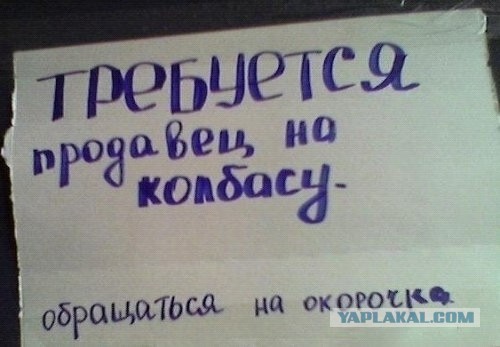 ТРЕБУЕТСЯ
продавец на
колбасу.
обращаться на окорочка
YAPLAKAL.COM